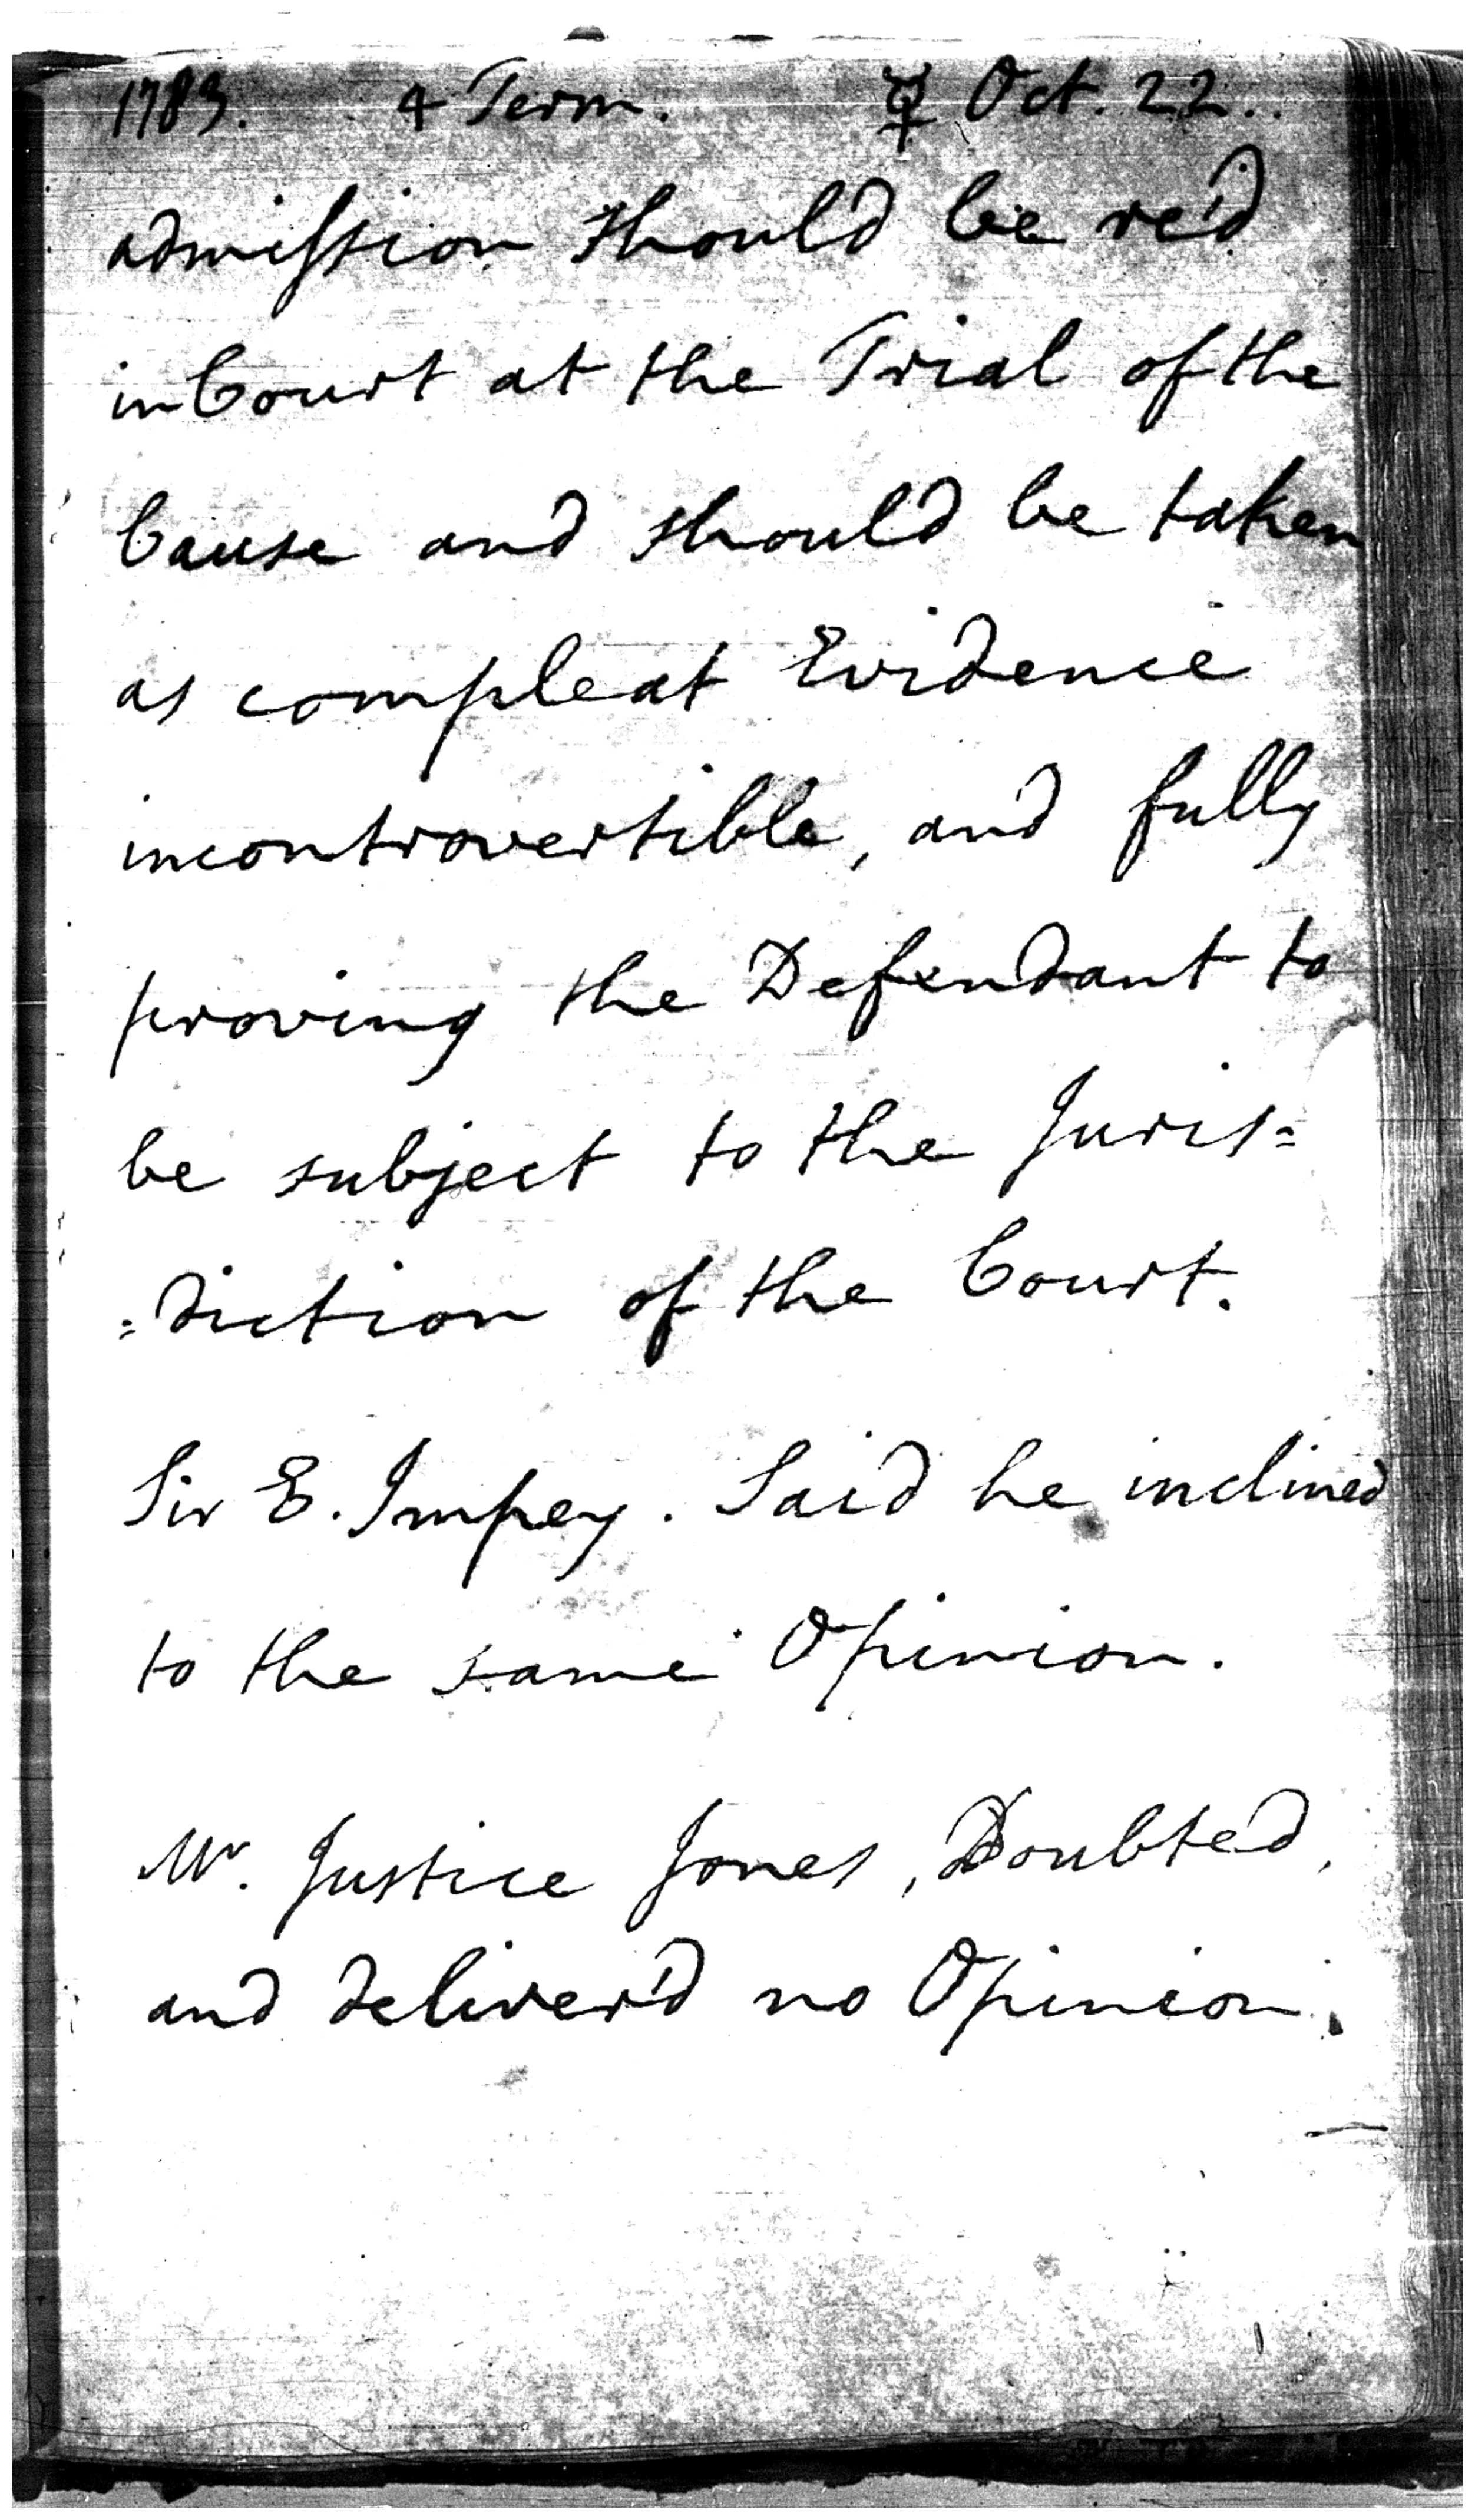 1783. 4 Term. ☿ Oct. 22.
admission should be re'd
in Court at the Trial of the
Cause and should be taken
as compleat Evidence
incontrovertible, and fully
proving the Defendant to
be subject to the Juris=
=diction of the Court.
Sir E. Impey. Said he inclined
to the same Opinion.
Mr. Justice Jones, Doubted,
and deliver'd no Opinion.